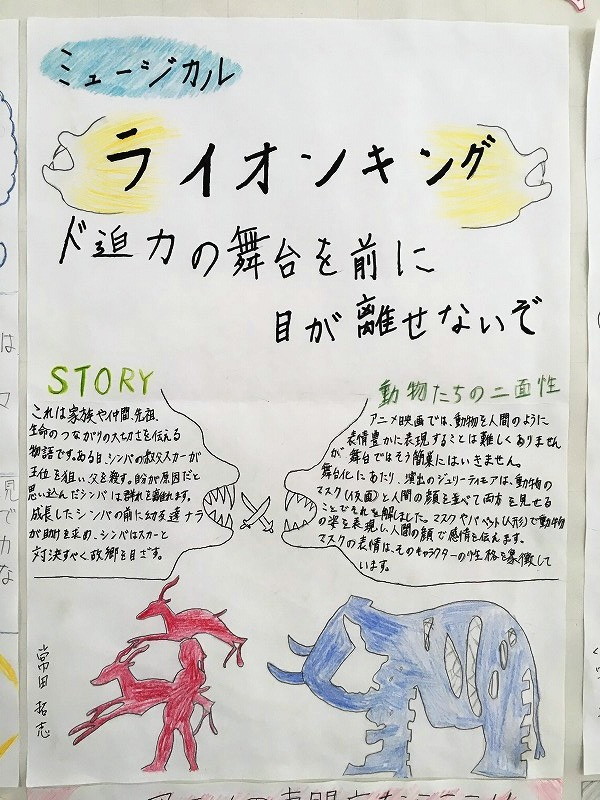 ミュージカル
ライオンキング
ド迫力の舞台を前に
目が離せないぞ
STORY
これは家族や仲間、先祖、
生命のつながりの大切さを伝える
物語です。ある日、シンバの叔父スカーが
王位を狙い、父を殺す。自分が原因だと
思い込んだシンバは群れを離れます。
成長したシンバの前に幼友達ナラ
が助けを求め、シンバはスカーと
対決すべく故郷を目ざす。
動物たちの二面性
アニメ映画では、動物を人間のように
表情豊かに表現することは難しくありません
が舞台ではそう簡単にはいきません。
舞台化にあたり、演出のジュリーテイモアは、動物の
マスク(仮面)と人間の顔を並べて両方を見せる
ことでそれを解しました。マスクやパペット(人形)で動物
の姿を表現し、人間の顔で感情を伝えます。
マスクの表情は、そのキャラクターの性格を象徴して
います。
常田 拓志